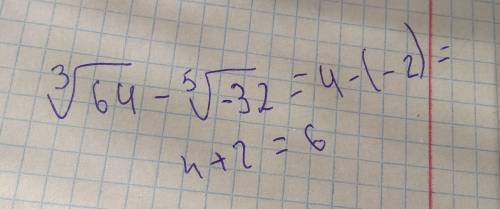 ∛64 - ⁵√-32 = 4 - (-2) =
4 + 2 = 6